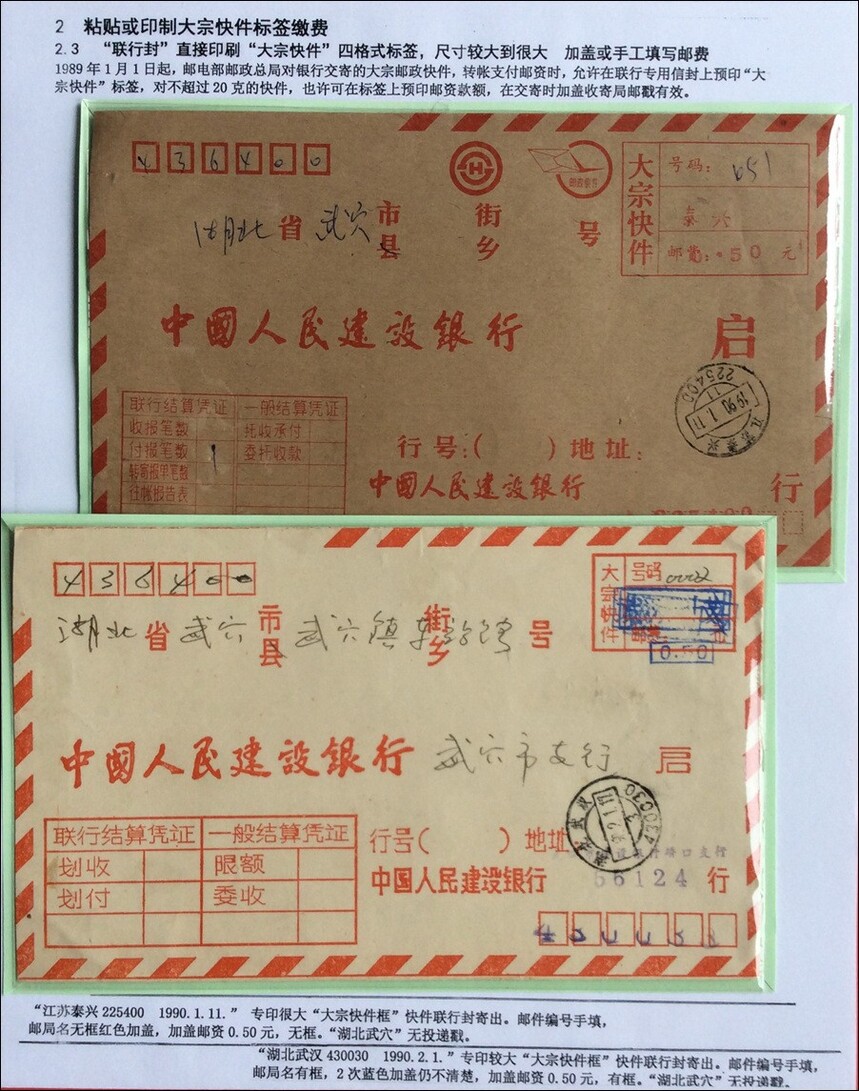 2 粘贴或印制大宗快件标签缴费
2.3 “联行封”直接印刷“大宗快件”四格式标签，尺寸较大到很大 加盖或手工填写邮费
1989年1月1日起，邮电部邮政总局对银行交寄的大宗邮政快件，转帐支付邮资时，允许在联行专用信封上预印“大
宗快件”标签，对不超过20克的快件，也许可在标签上预印邮资款额，在交寄时加盖收寄局邮戳有效。
436400
大宗快件
号码： 651
泰兴
邮资：.50元
湖北省 武穴 市县 街乡 号
中國人民建设銀行 启
225400
1990.1.11
江苏泰兴
联行结算凭证 一般结算凭证
收报笔数 托收承付
付报笔数 1 委托收款
转寄报单笔数
往帐报告表
行号：( ) 地址：
中國人民建设銀行 行
436400
大宗快件
号码 0002
0.50
湖北省 武穴 市县 武穴镇 街乡 号
中國人民建设銀行 武穴市支行 启
430030
联行结算凭证 一般结算凭证
划收 限额
划付 委收
行号( ) 地址
中國人民建设银行 56124 行
“江苏泰兴225400 1990.1.11.” 专印很大“大宗快件框”快件联行封寄出。邮件编号手填，
邮局名无框红色加盖，加盖邮资0.50元，无框。“湖北武穴”无投递戳。
“湖北武汉430030 1990.2.1.”专印较大“大宗快件框”快件联行封寄出。邮件编号手填，
邮局名有框，2次蓝色加盖仍不清楚，加盖邮资0.50元，有框。“湖北武穴”无投递戳。